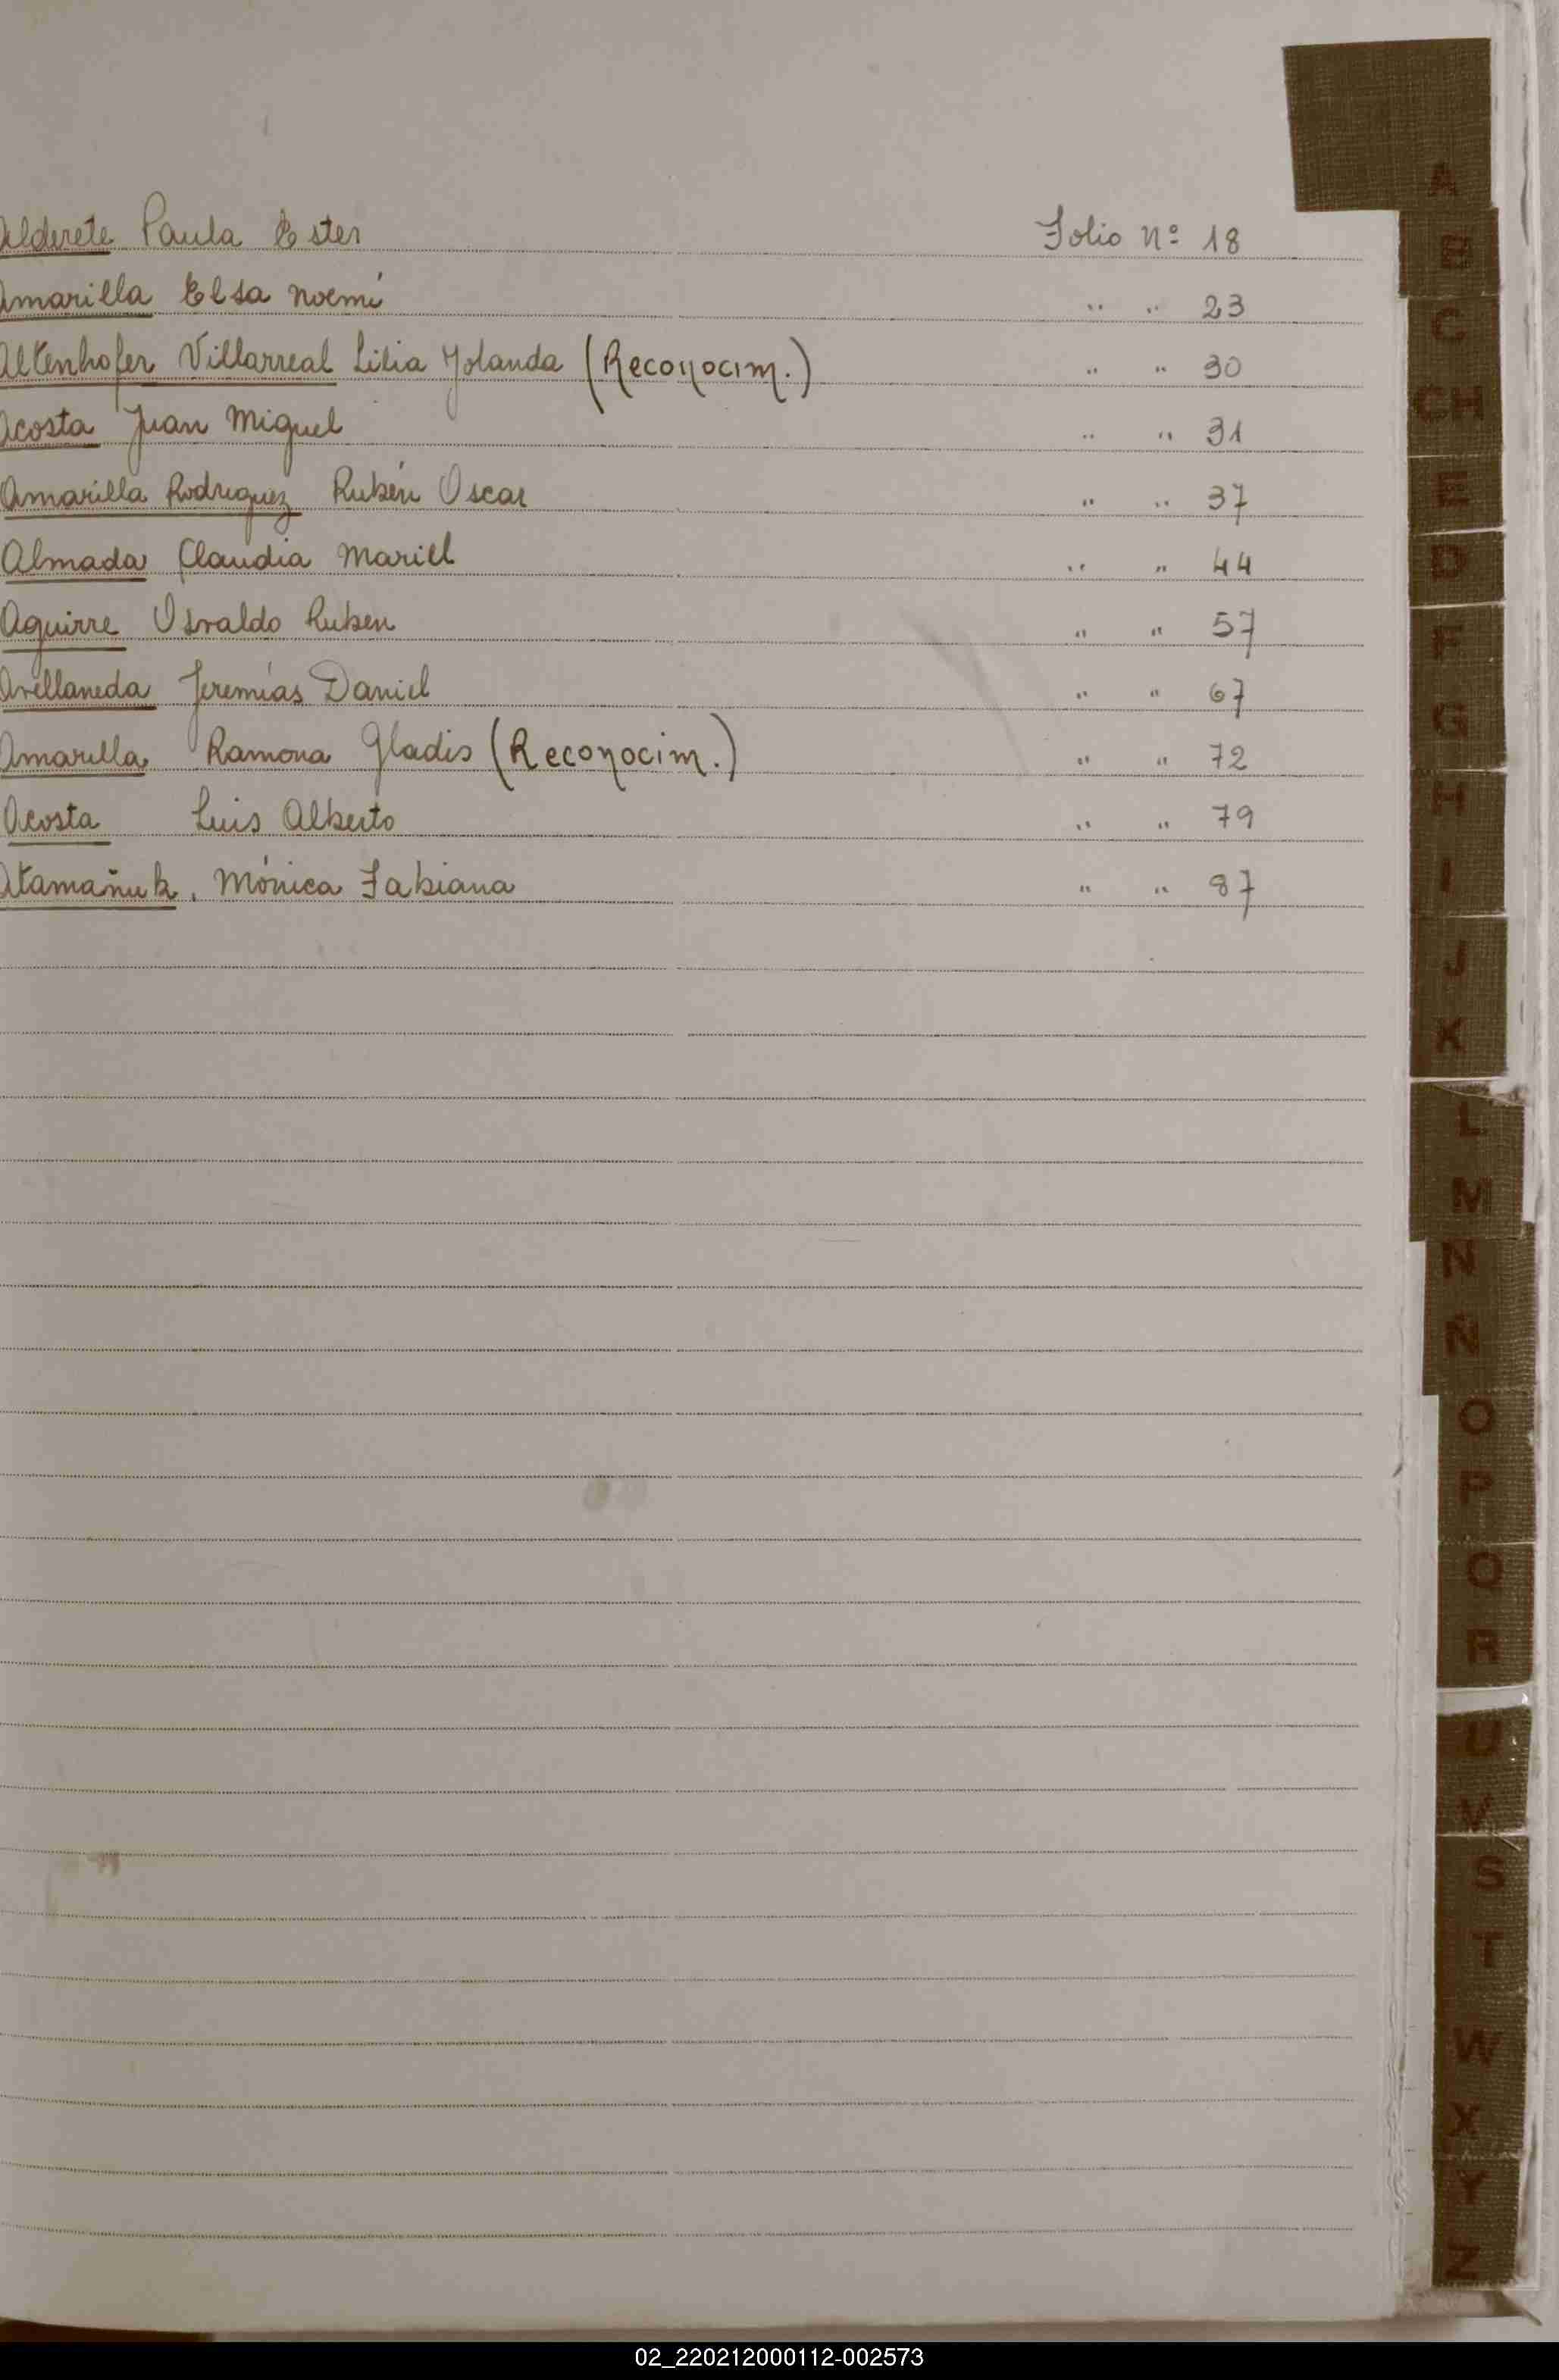 Alderete Paula Ester Folio Nº 18
Amarilla Elsa Noemí " " 23
Altenhofer Villarreal Lilia Yolanda (Reconocim.) " " 30
Acosta Juan Miguel " " 31
Amarilla Rodriguez Rubén Oscar " " 37
Almada Claudia Mariel " " 44
Aguirre Osvaldo Ruben " " 57
Avellaneda Jeremías Daniel " " 67
Amarilla Ramona Gladis (Reconocim.) " " 72
Acosta Luis Alberto " " 79
Atamañuk, Mónica Fabiana " " 87
A
B
C
CH
E
D
F
G
H
I
J
K
L
M
N
Ñ
O
P
Q
R
U
V
S
T
W
X
Y
Z
02_220212000112-002573